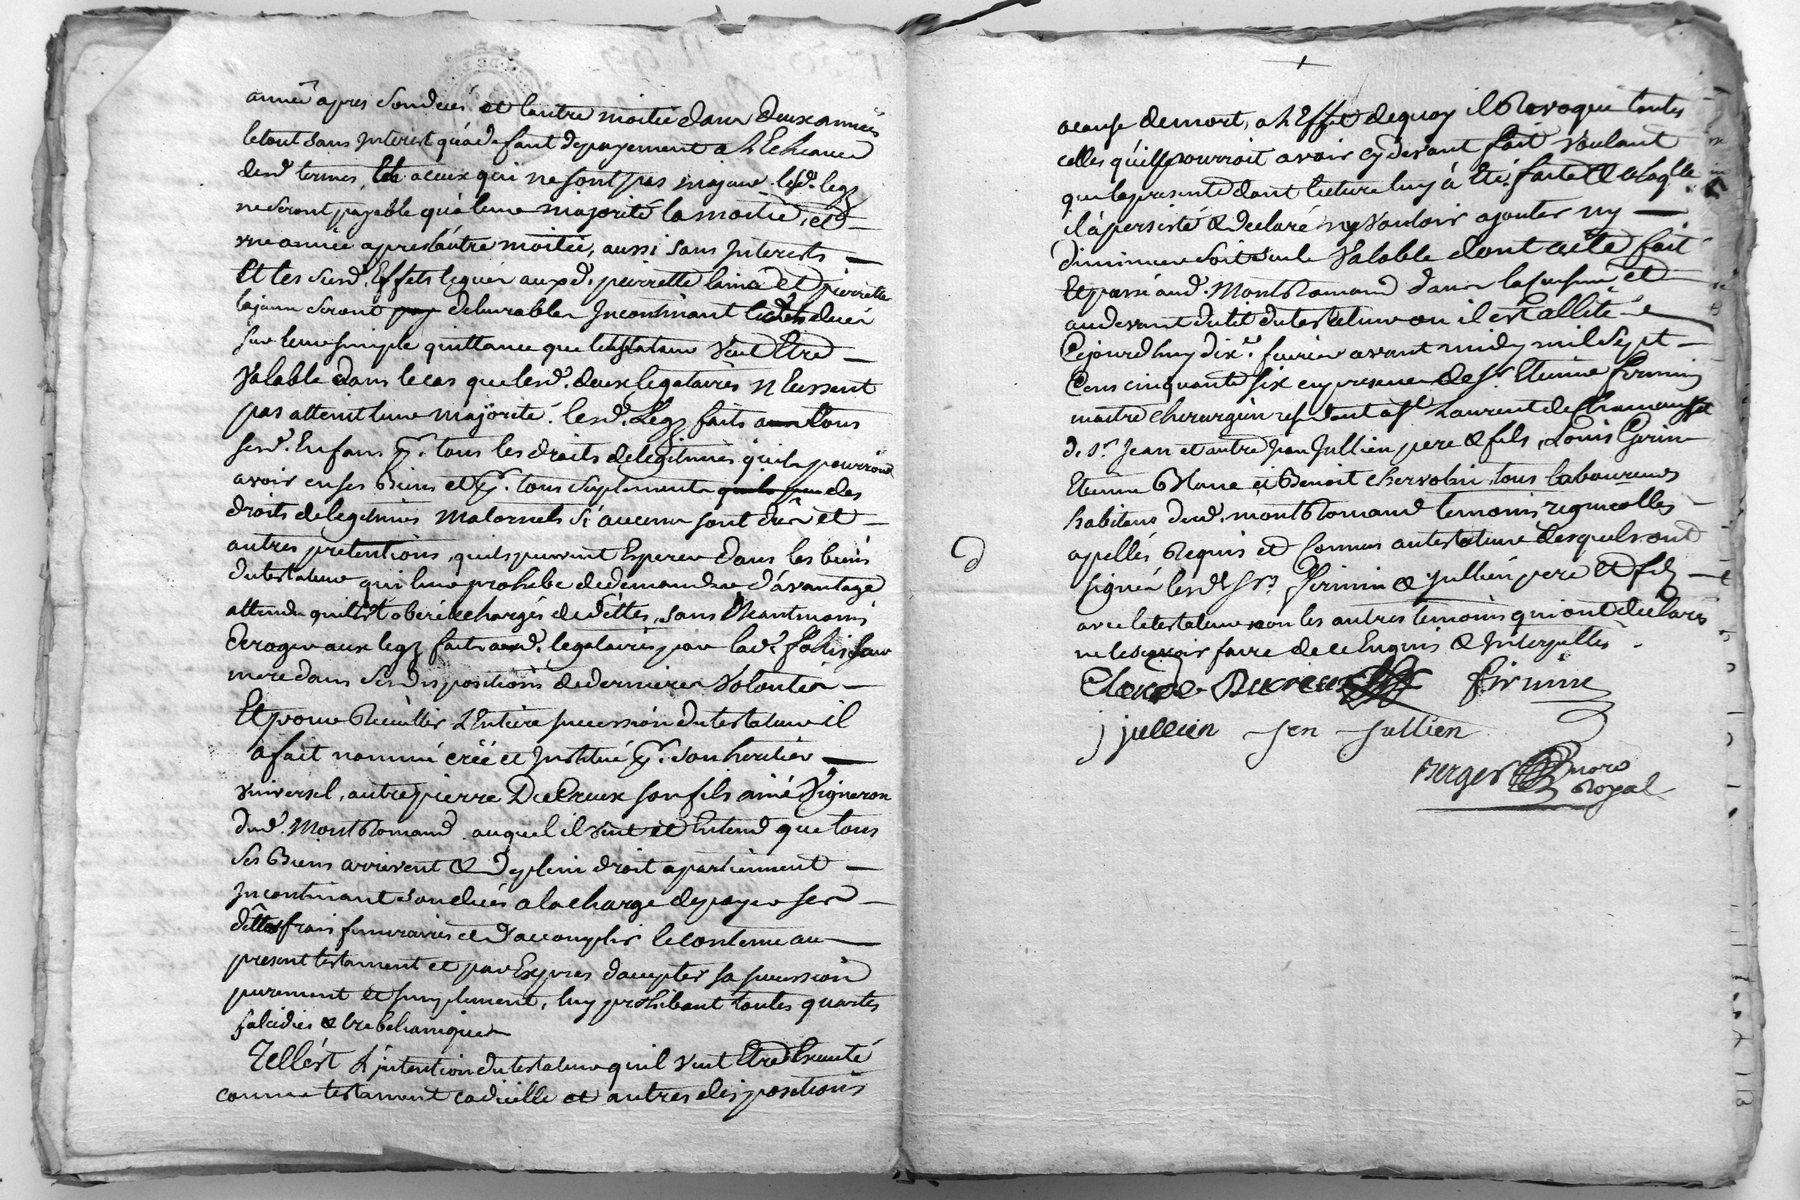 année apres son deces et lautre moitié dans deux années
le tout sans Interest qu'a defaut de payement a L'Echeance
desd. termes, Et a ceux qui ne sont pas majeur lesd. legz
ne seront payable qu'a leur majorité la moitié, et
une année apres l'autre moitiée, aussi sans Interests
Et les susd. Effets legués auxd. pierrette lainé et pierrette
la jeune seront delivrables Incontinant led. deces
sur leur simple quittance que le testateur veut Etre
Valable dans le cas que lesd. deux legataires n'Eussent
pas atteint leur majorité. lesd. Legz faits a tous
sesd. Enfans pr. tous les droits de legitimes qu'ils pourroient
avoir en ses Biens et pr. tous suplements des
droits de legitimes maternels si aucuns sont dus et
autres pretentions, quils peuvent Esperer dans les biens
du testateur qui leur prohibe de demander d'avantage
attendu quil Est oberé et chargés de dettes, sans Neantmoins
deroger aux legz faits auxd. legataires par lad. leur
mere dans ses dispositions de dernieres Volontés
Et pour Recüillir L'Entiere succession du testateur il
a fait nommé créé et Institué pr. son heritier
universel, autre pierre Ducreux son fils ainé Vigneron
dud. MontRomand auquel il veut et Entend que tous
ses Biens arrivent & de plein droit apartiennent
Incontinant son deces a la charge de payer ses
dettes frais funeraires et d'accomplir le contenu au
present testament et par Exprès d'accepter sa succession
purement et simplement, luy prohibant toutes quartes
falcidies & trebelianiques
Tell'est L'intention du testateur qu'il veut Etre Executé
comme testament codicille et autres dispositions
a cause de mort, a L'Effet de quoy il Revoque toutes
celles qu'il pourroit avoir cy devant fait voulant
que la presente dont lecture luy à Eté faite & a laqlle
il à persisté & Declaré n'y vouloir ajouter ny
diminuer soit seule Valable dont acte fait
Et passé aud. MontRomand dans la et
au devant du lit du testateur ou il est allité
Cejourd'huy dix e. fevrier avant midy mil sept
Cens cinquante six en presence de Sr. Etienne firmin
maitre chirurgien resident a St Laurent de Chamousset
de Sr. Jean et autre Jean Jullien pere & fils, Louis
Etienne Blanc et Benoit chervolin, tous laboureurs
habitans dud. montRomand temoins
apellés Requis et Connus au testateur desquels ont
signés lesd. Srs. firmin & Jullien pere Et fils
avec le testateur non les autres temoins qui ont declaré
ne le sçavoir faire de ce Enquis & Interpellés.
Claude Ducreux firmin
j jullien jen Jullien
Berger nore
Royal